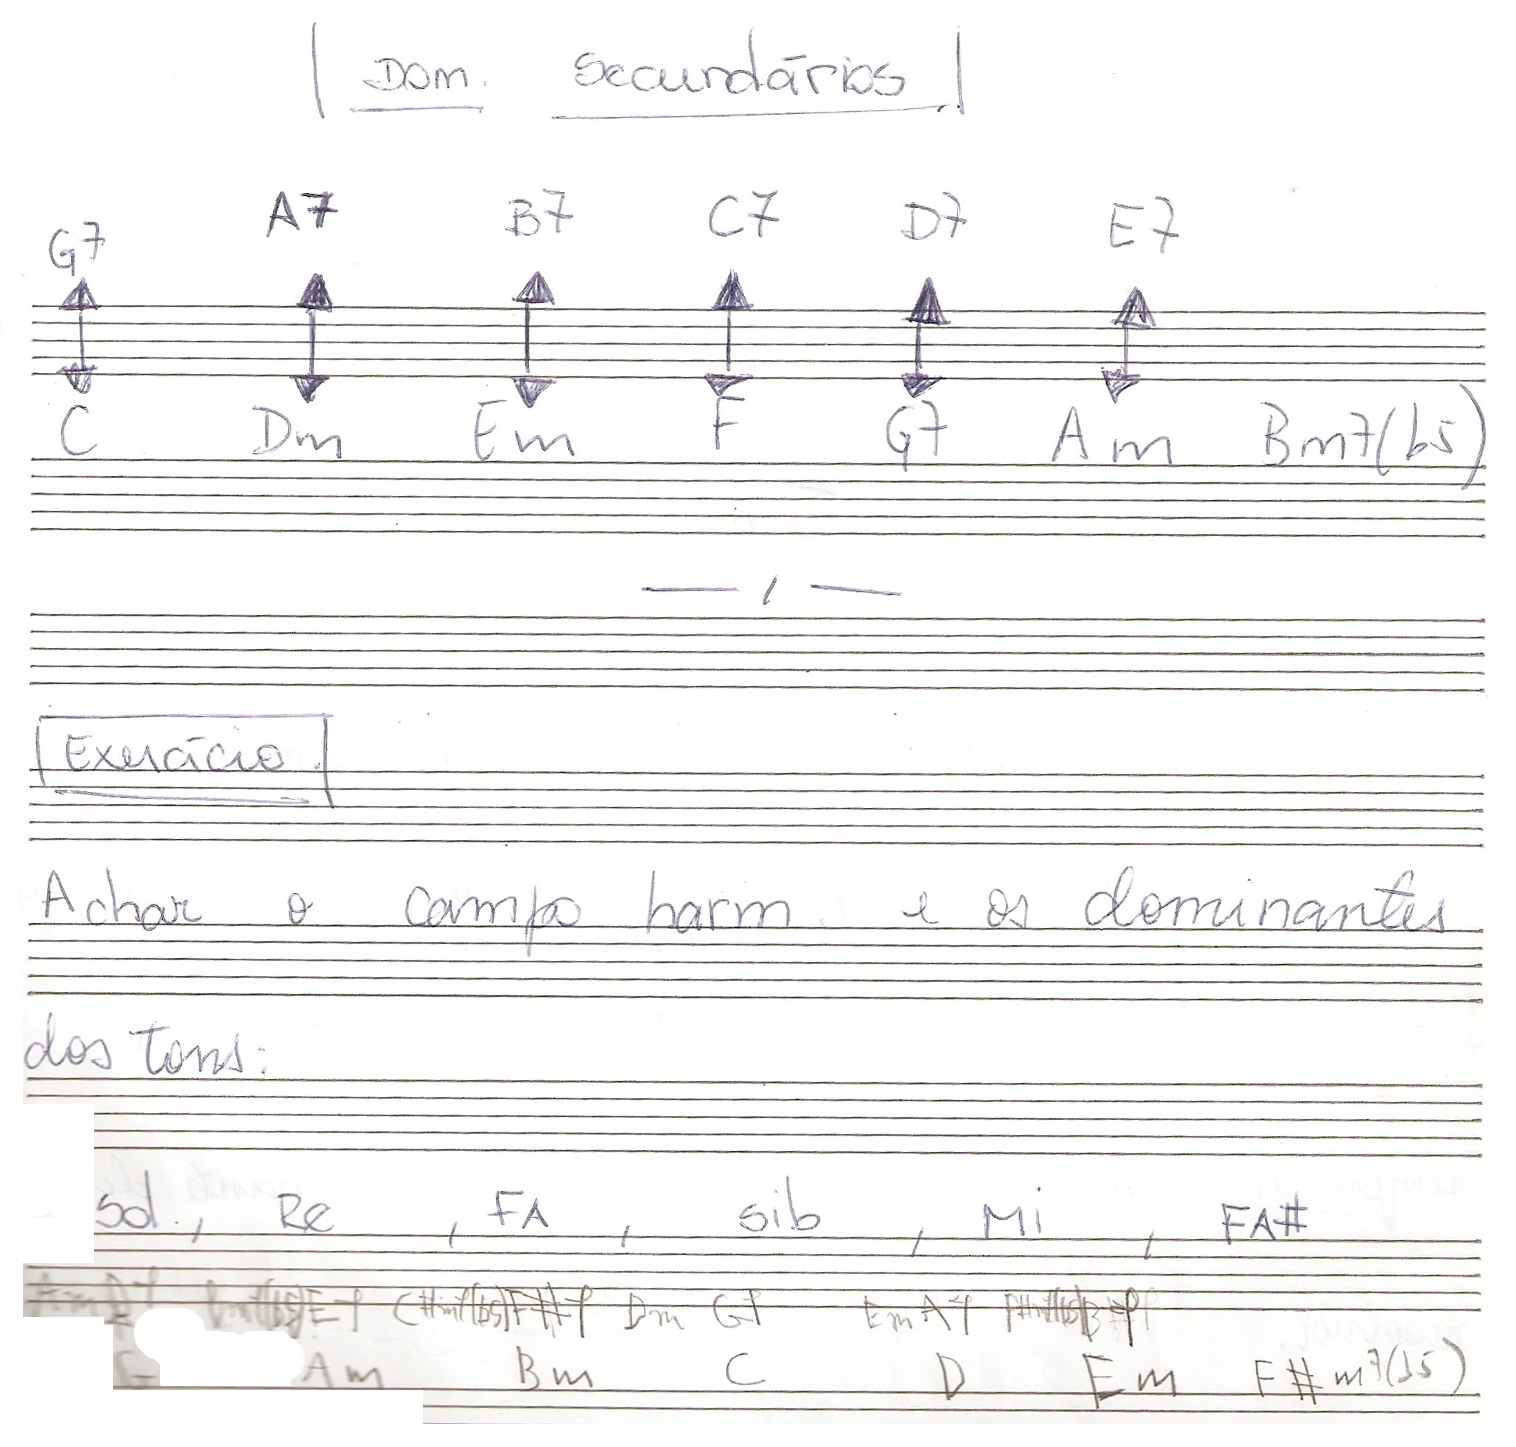 Dom. Secundários
G7 A7 B7 C7 D7 E7
C Dm Em F G7 Am Bm7(b5)
Exercício
Achar o campo harm. e os dominantes
dos tons:
Sol, Re, FA, Sib, Mi, FA#
Am D7 E7 C#m7(b5) F#7 Dm G7 Em A7 F#m7(b5)
G Am Bm C D Em F#m7(b5)